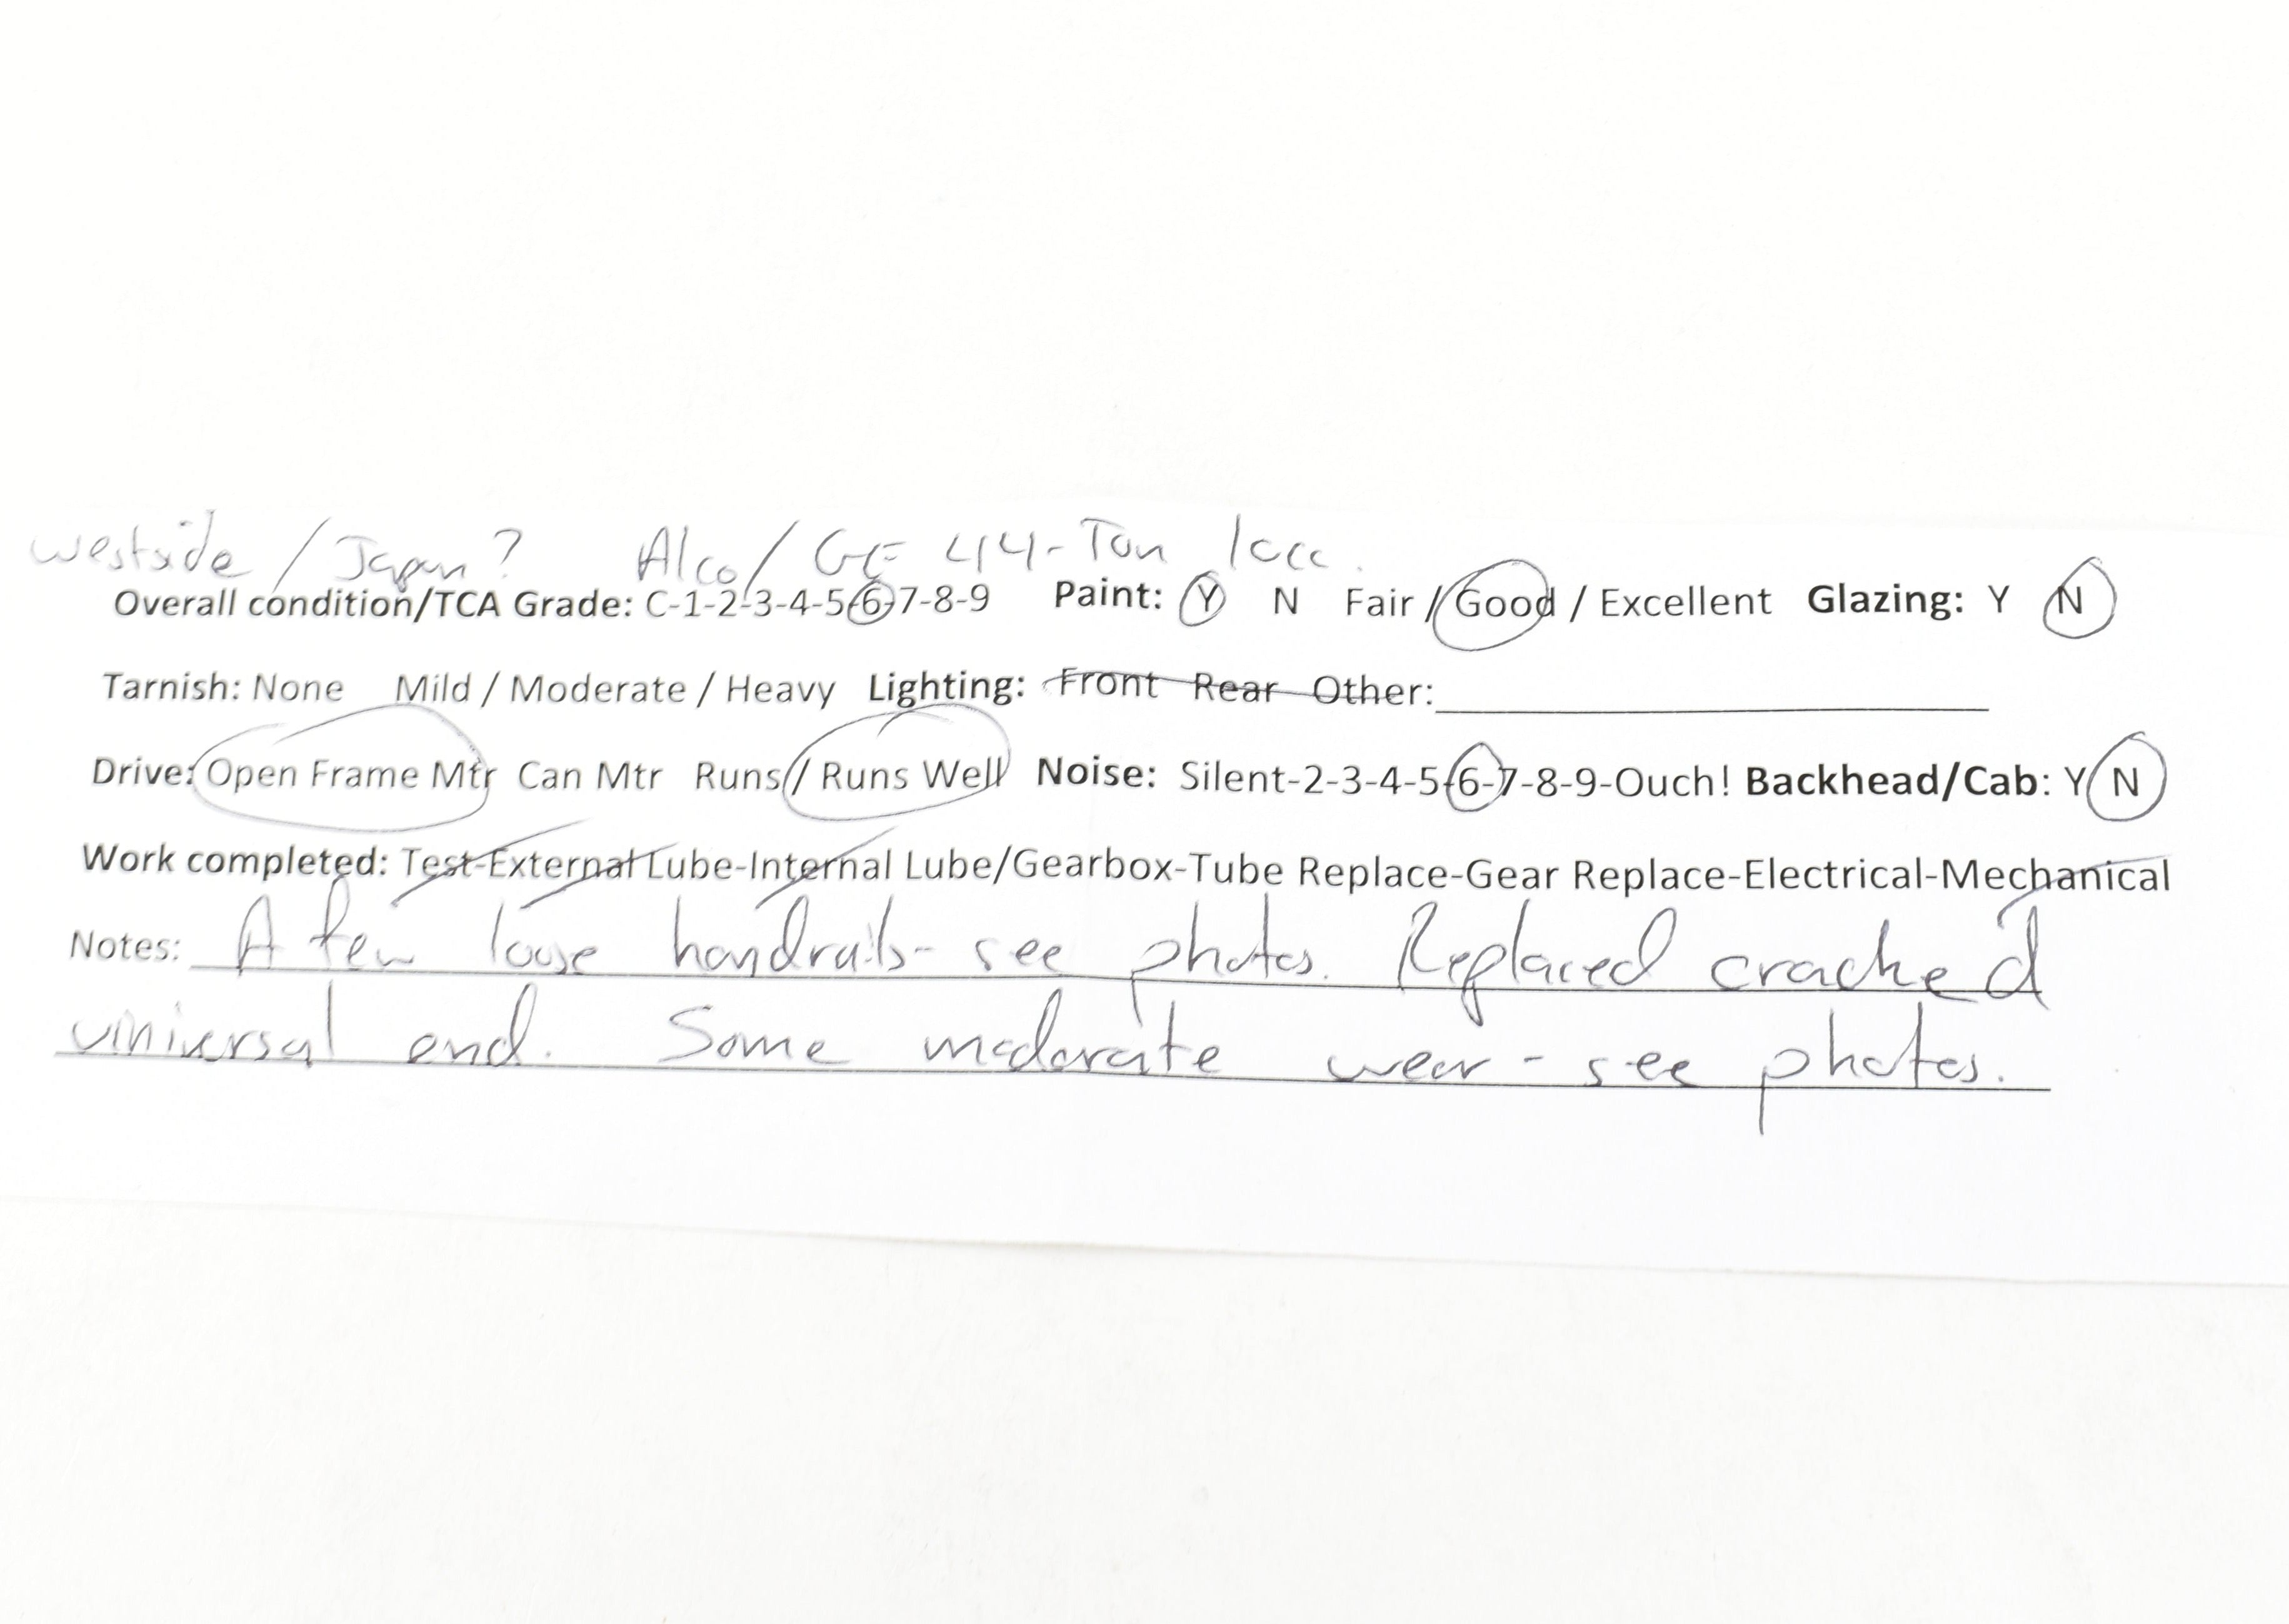 Westside / Japan? Alco/ GE 44-Ton loco.
Overall condition/TCA Grade: C-1-2-3-4-5-6-7-8-9 Paint: Y N Fair / Good / Excellent Glazing: Y N
Tarnish: None Mild / Moderate / Heavy Lighting: Front Rear Other:
Drive: Open Frame Mtr Can Mtr Runs / Runs Well Noise: Silent-2-3-4-5-6-7-8-9-Ouch! Backhead/Cab: Y N
Work completed: Test-External Lube-Internal Lube/Gearbox-Tube Replace-Gear Replace-Electrical-Mechanical
Notes: A few loose handrails- see photos. Replaced cracked
universal end. Some moderate wear - see photos.